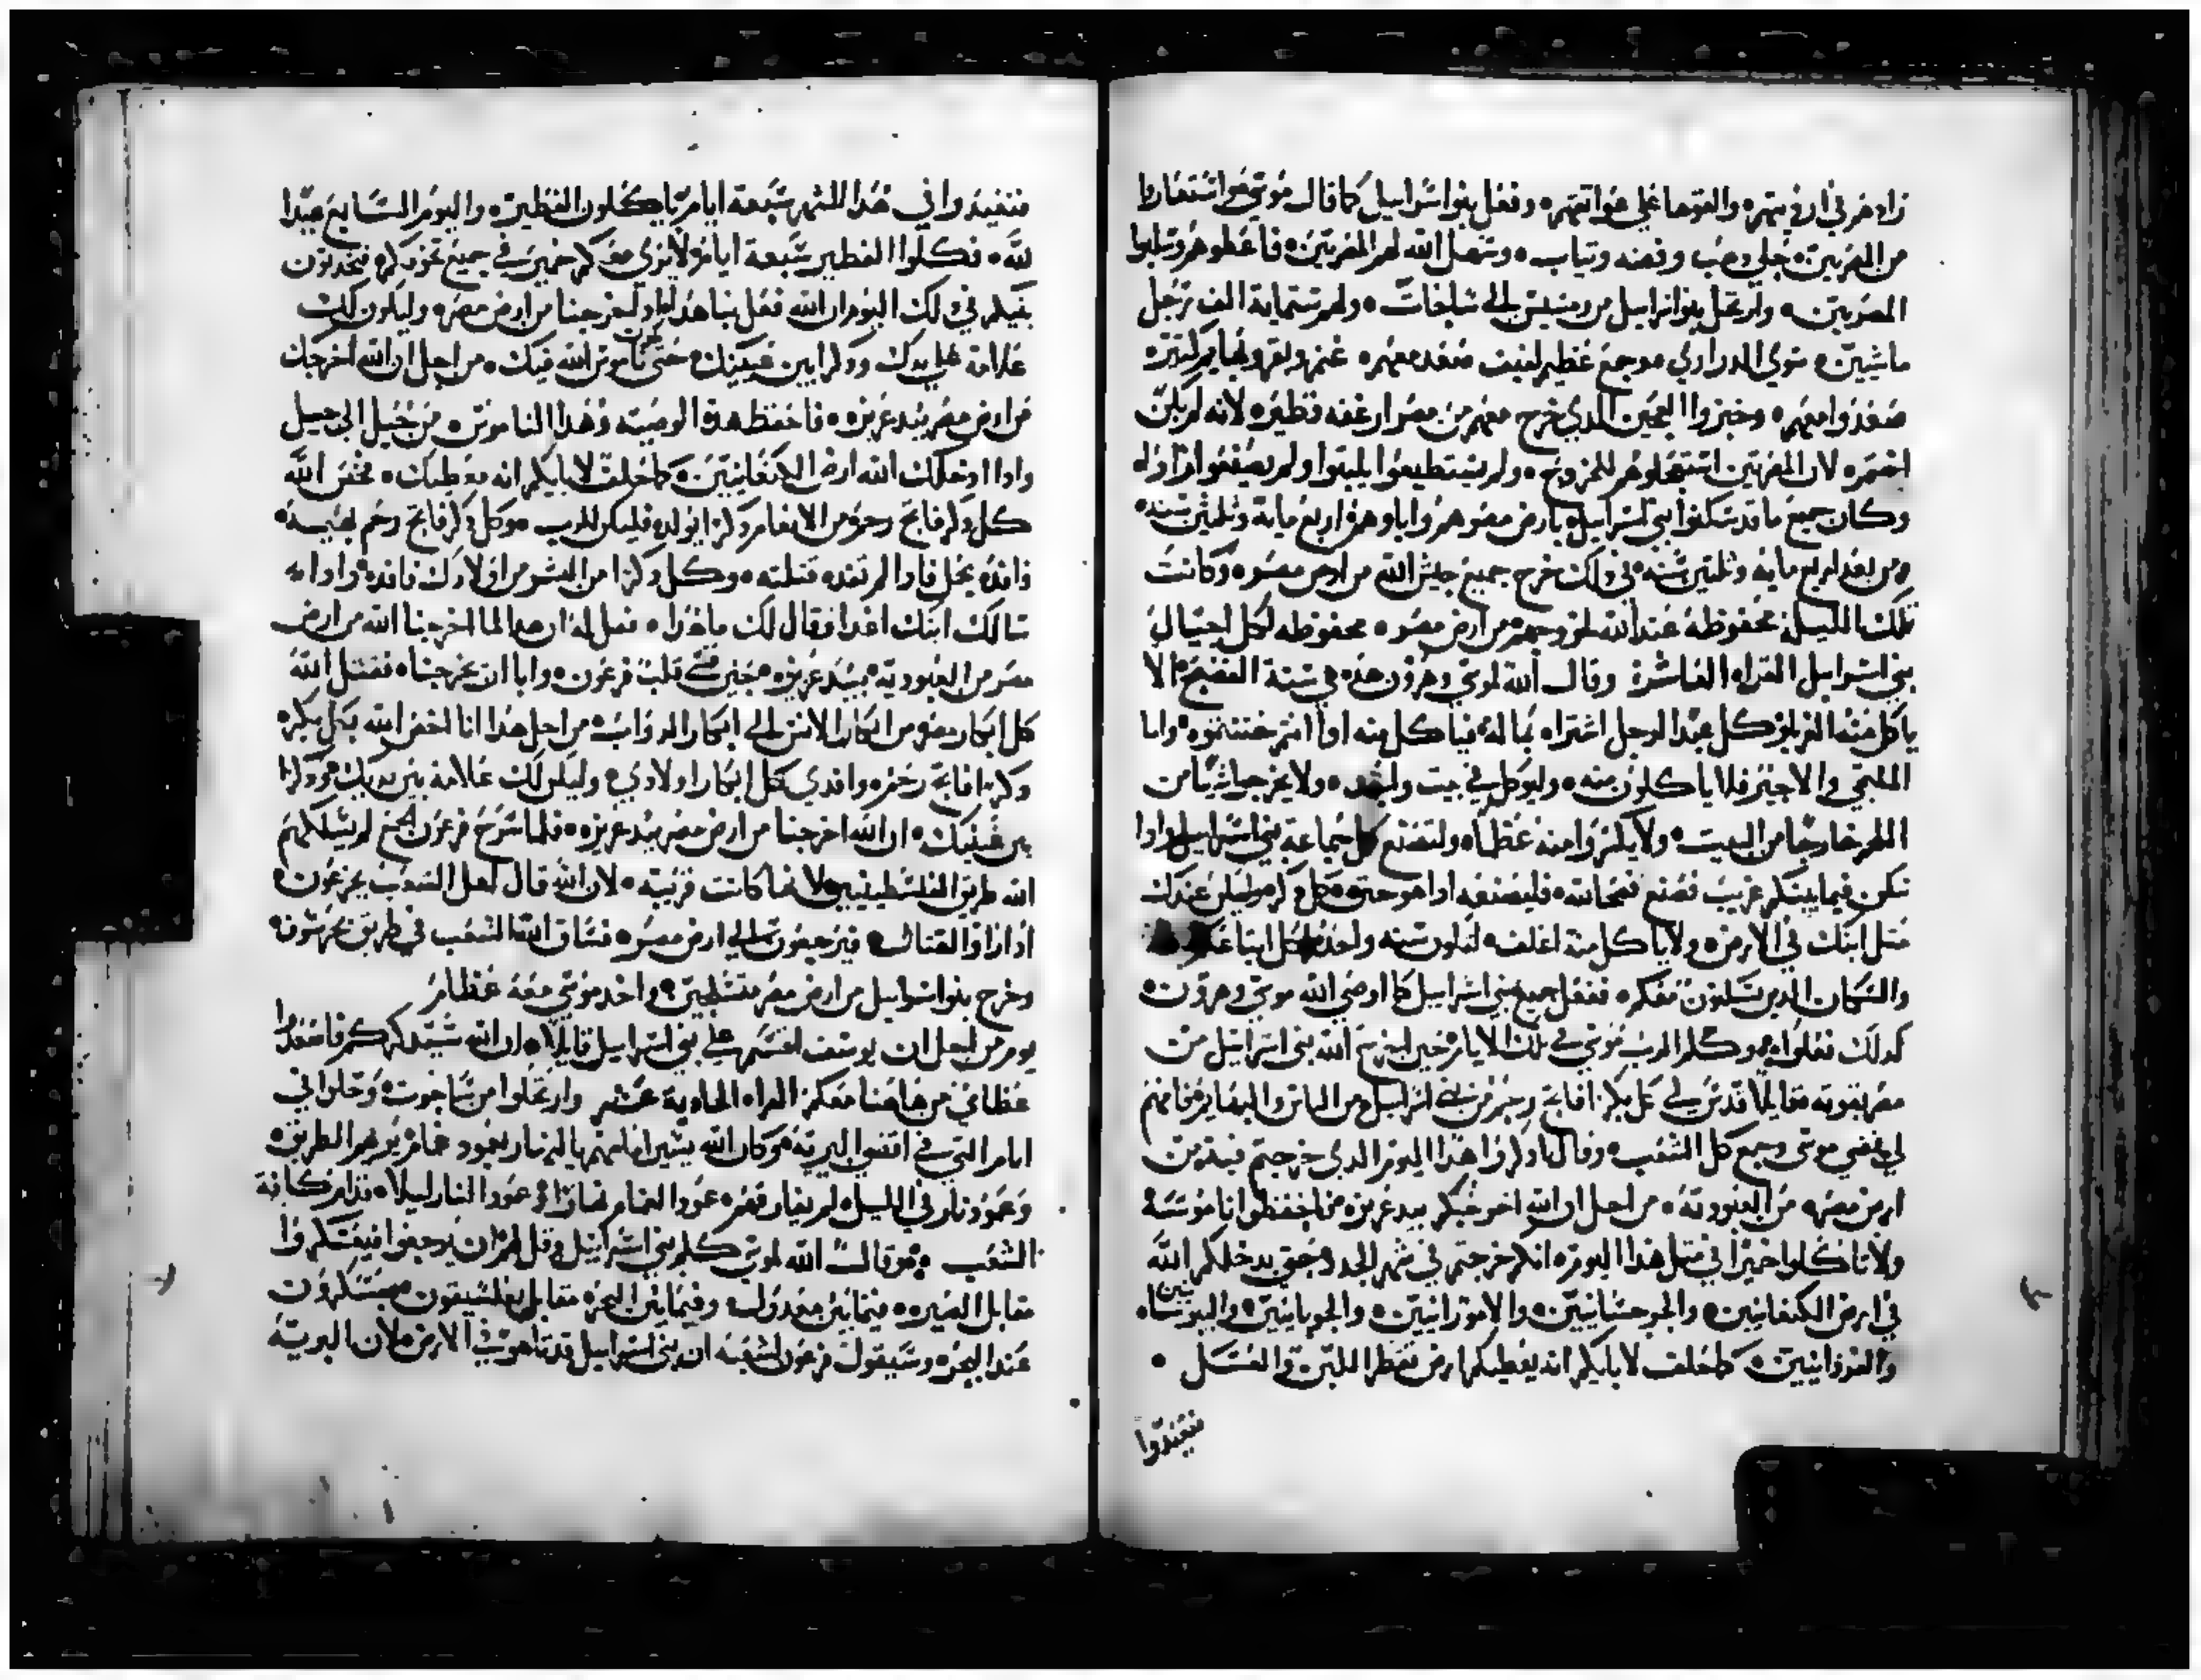 زادهم في ارديتهم والقوها على عواتقهم وفعل بنوا اسراييل كما قال موسى واستعاروا
من المصريين حلي دهب وفضه وتياب وسهل الله لهم المصريين فاعطوهم وسلبوا
المصريين وارتحل بنوا اسراييل من رمسيس الى ساخات ولهم ستماية الف رجل
ماشيين سوي الدراري وجمع عظيم لفيف صعد معهم غنم وبقر وبهايم كتيره
صعدوا معهم وخبزوا العجين الدي خرج معهم من مصر ارغفه فطير لانه لم يكن
اختمر لان المصريين استعجلوهم للخروج ولم يستطيعوا يلبتوا ولم يصنعوا لهم زاد
وكان جميع ما قد سكنوا بني اسراييل بارض مصر هم واباوهم اربع ماية وتلتين سنه
ومن بعد اربع ماية وتلتين سنه في دلك خرج جميع جيش الله من ارض مصر وكانت
تلك الليله محفوظة عند الله لخروجهم من ارض مصر محفوظه لكل اجيال
بني اسراييل القراه العاشرة وقال الله لموسى وهرون هده هي سنة الفصح الا
ياكل منه الغريب وكل عبد الرجل اشتراه بماله فياكل منه ادا انتم ختنتموه واما
الملتجي والاجير فلا ياكلون منه وليوكل في بيت واحد ولا يخرجوا شيا من
اللحم خارجا من البيت ولا يكسروا منه عظما ولتصنع كل جماعة بني اسراييل وادا
سكن فيما بينكم غريب فصنع فصحا لله فليصنعه ادا هو ختن كل دكر له وليكن عندك
متل ابنك في الارض ولا ياكل منه اغلف لتكون سنه واحده لكل ابنا
والسكان الدين يسكنون معكم ففعل جميع بني اسراييل كما اوصي الله موسى وهرون
كدلك فعلوا وكلم الرب موسى في تلك الايام حين اخرج الله بني اسراييل من
مصر بقوته قايلا قدس لي كل بكر فاتح رحم من بني اسراييل من الناس والبهايم فانهم
لي فمضى موسى وجمع كل الشعب وقال ادكروا هدا اليوم الدي خرجتم فيه من
ارض مصر من العبودية من اجل ان الله اخرجكم بيد عزيزه فاحفظوا ناموسه
ولا تاكلوا خميرا في متل هدا اليوم انكم خرجتم في شهر الجدد حتى يدخلكم الله
في ارض الكنعانيين والجرجسانيين والامورانيين والحويانيين واليبوسانيين
والفرزانيين كما حلف لابايكم انه يعطيكم ارض تقطر اللبن والعسل
فتعيدوا
فتعيدوا في هدا الشهر سبعة ايام ياكلون الفطير واليوم السابع عيدا
لله فكلوا الفطير سبعة ايام ولا يري معكم خمير في جميع تخومكم فتحدتون
بنيكم في دلك اليوم ان الله فعل بنا هدا اد اخرجنا من ارض مصر وليكون لك
علامة على يدك ودكر ا بين عينيك حتى يكون ناموس الله فيك من اجل ان الله اخرجك
من ارض مصر بيد عزيزه فاحفظ هده الوصية وهدا الناموس من جيل الى جيل
وادا ادخلك الله ارض الكنعانيين كما حلف لابايكم انه يعطيك تخص الله
كل دكر فاتح رحم ومن الانعام دكرا يولد فليكن للرب وكل دكر فاتح رحم بهيمه
فافده بحمل فادا لم تفده قتلته وكل دكرا من البشر من اولادك فافده وادا
سالك ابنك غدا وقال لك ما هدا فقل له ان هدا لما اخرجنا الله من ارض
مصر من العبودية بيد عزيزه حين قسي قلب فرعون وابا ان يخرجنا فقتل الله
كل ابكار مصر من ابكار الانس الى ابكار الدواب من اجل هدا انا اخص الله بكل بكر
دكرا فاتح رحم وافدي كل ابكار اولادي وليكن لك علامة بين يديك ودكرا
بين عينيك ان الله اخرجنا من ارض مصر بيد عزيزه فلما سرح فرعون لم يسلكهم
الله طريق الفلسطينيين لانها كانت قريبة لان الله قال لعل الشعب يجزعون
ادا راوا القتال فيرجعون الى ارض مصر فساق الله الشعب في طريق بحر سوف
وخرج بنوا اسراييل من ارض مصر متسلحين واخد موسى معه عظام
يوسف من اجل ان يوسف اقسم على بني اسراييل قايلا ان الله سيتدكركم فاصعدوا
عظامي من هاهنا معكم القراه الحادية عشر وارتحلوا من ساخوت وحلوا في
ايتام التي في اقصي البرية وكان الله يسير امامهم بالنهار بعمود غمام يريهم الطريق
وعمود نار في الليل لم يفارقهم عمود الغمام نهارا وعمود النار ليلا قدام كافة
الشعب وقال الله لموسى كلم بني اسراييل وقل لهم ان يرجعوا فيعسكروا
مقابل الضيره فيمابين مجدول وفيمابين البحر مقابل بعلصيفون يعسكرون
عند البحر وسيقول فرعون لشعبه ان بني اسراييل قد تاهوا في الارض لان البرية